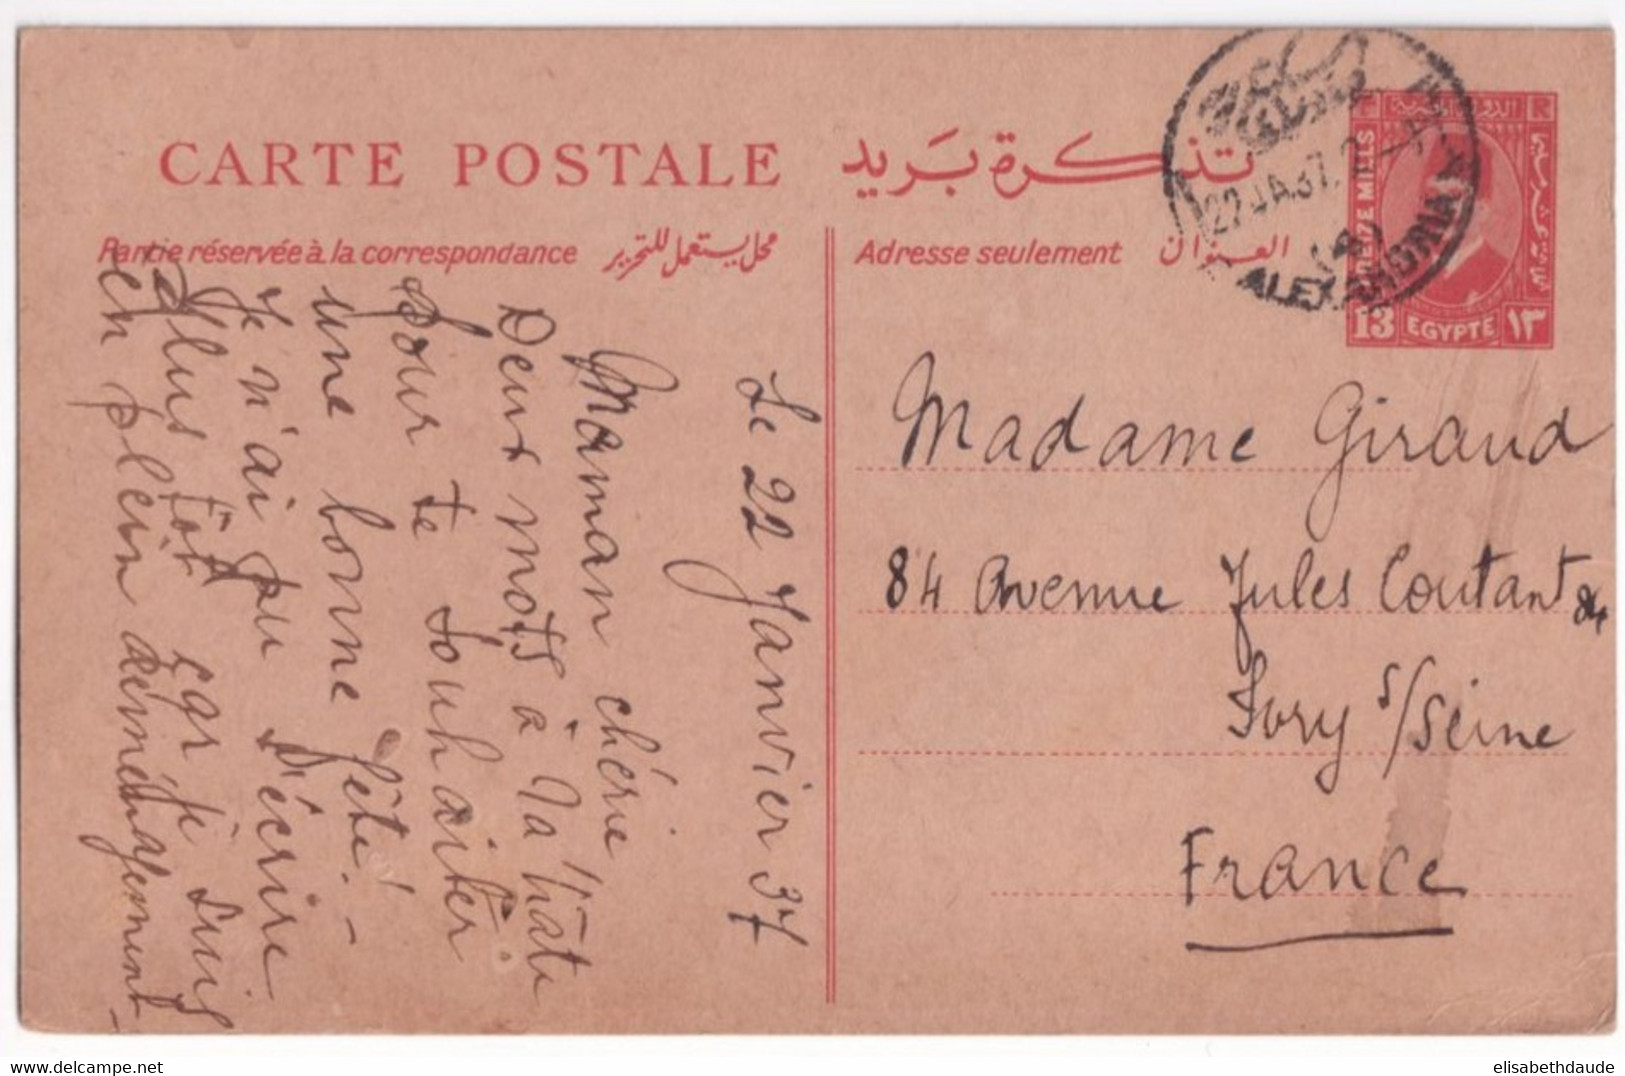 CARTE POSTALE
تذكرة بريد
Partie réservée à la correspondance
محل يستعمل للتحرير
Adresse seulement
العنوان
22 JA.37
ALEXANDRIA
TREIZE MILLS
13 EGYPTE ١٣
Le 22 Janvier 37
Maman chérie
Deux mots à la hâte
pour te souhaiter
une bonne fête! -
Je n'ai pu t'écrire
plus tôt car je suis
en plein déménagement -
Madame Giraud
84 Avenue Jules Coutant 84
Ivry s/Seine
France
delcampe.net
elisabethdaude